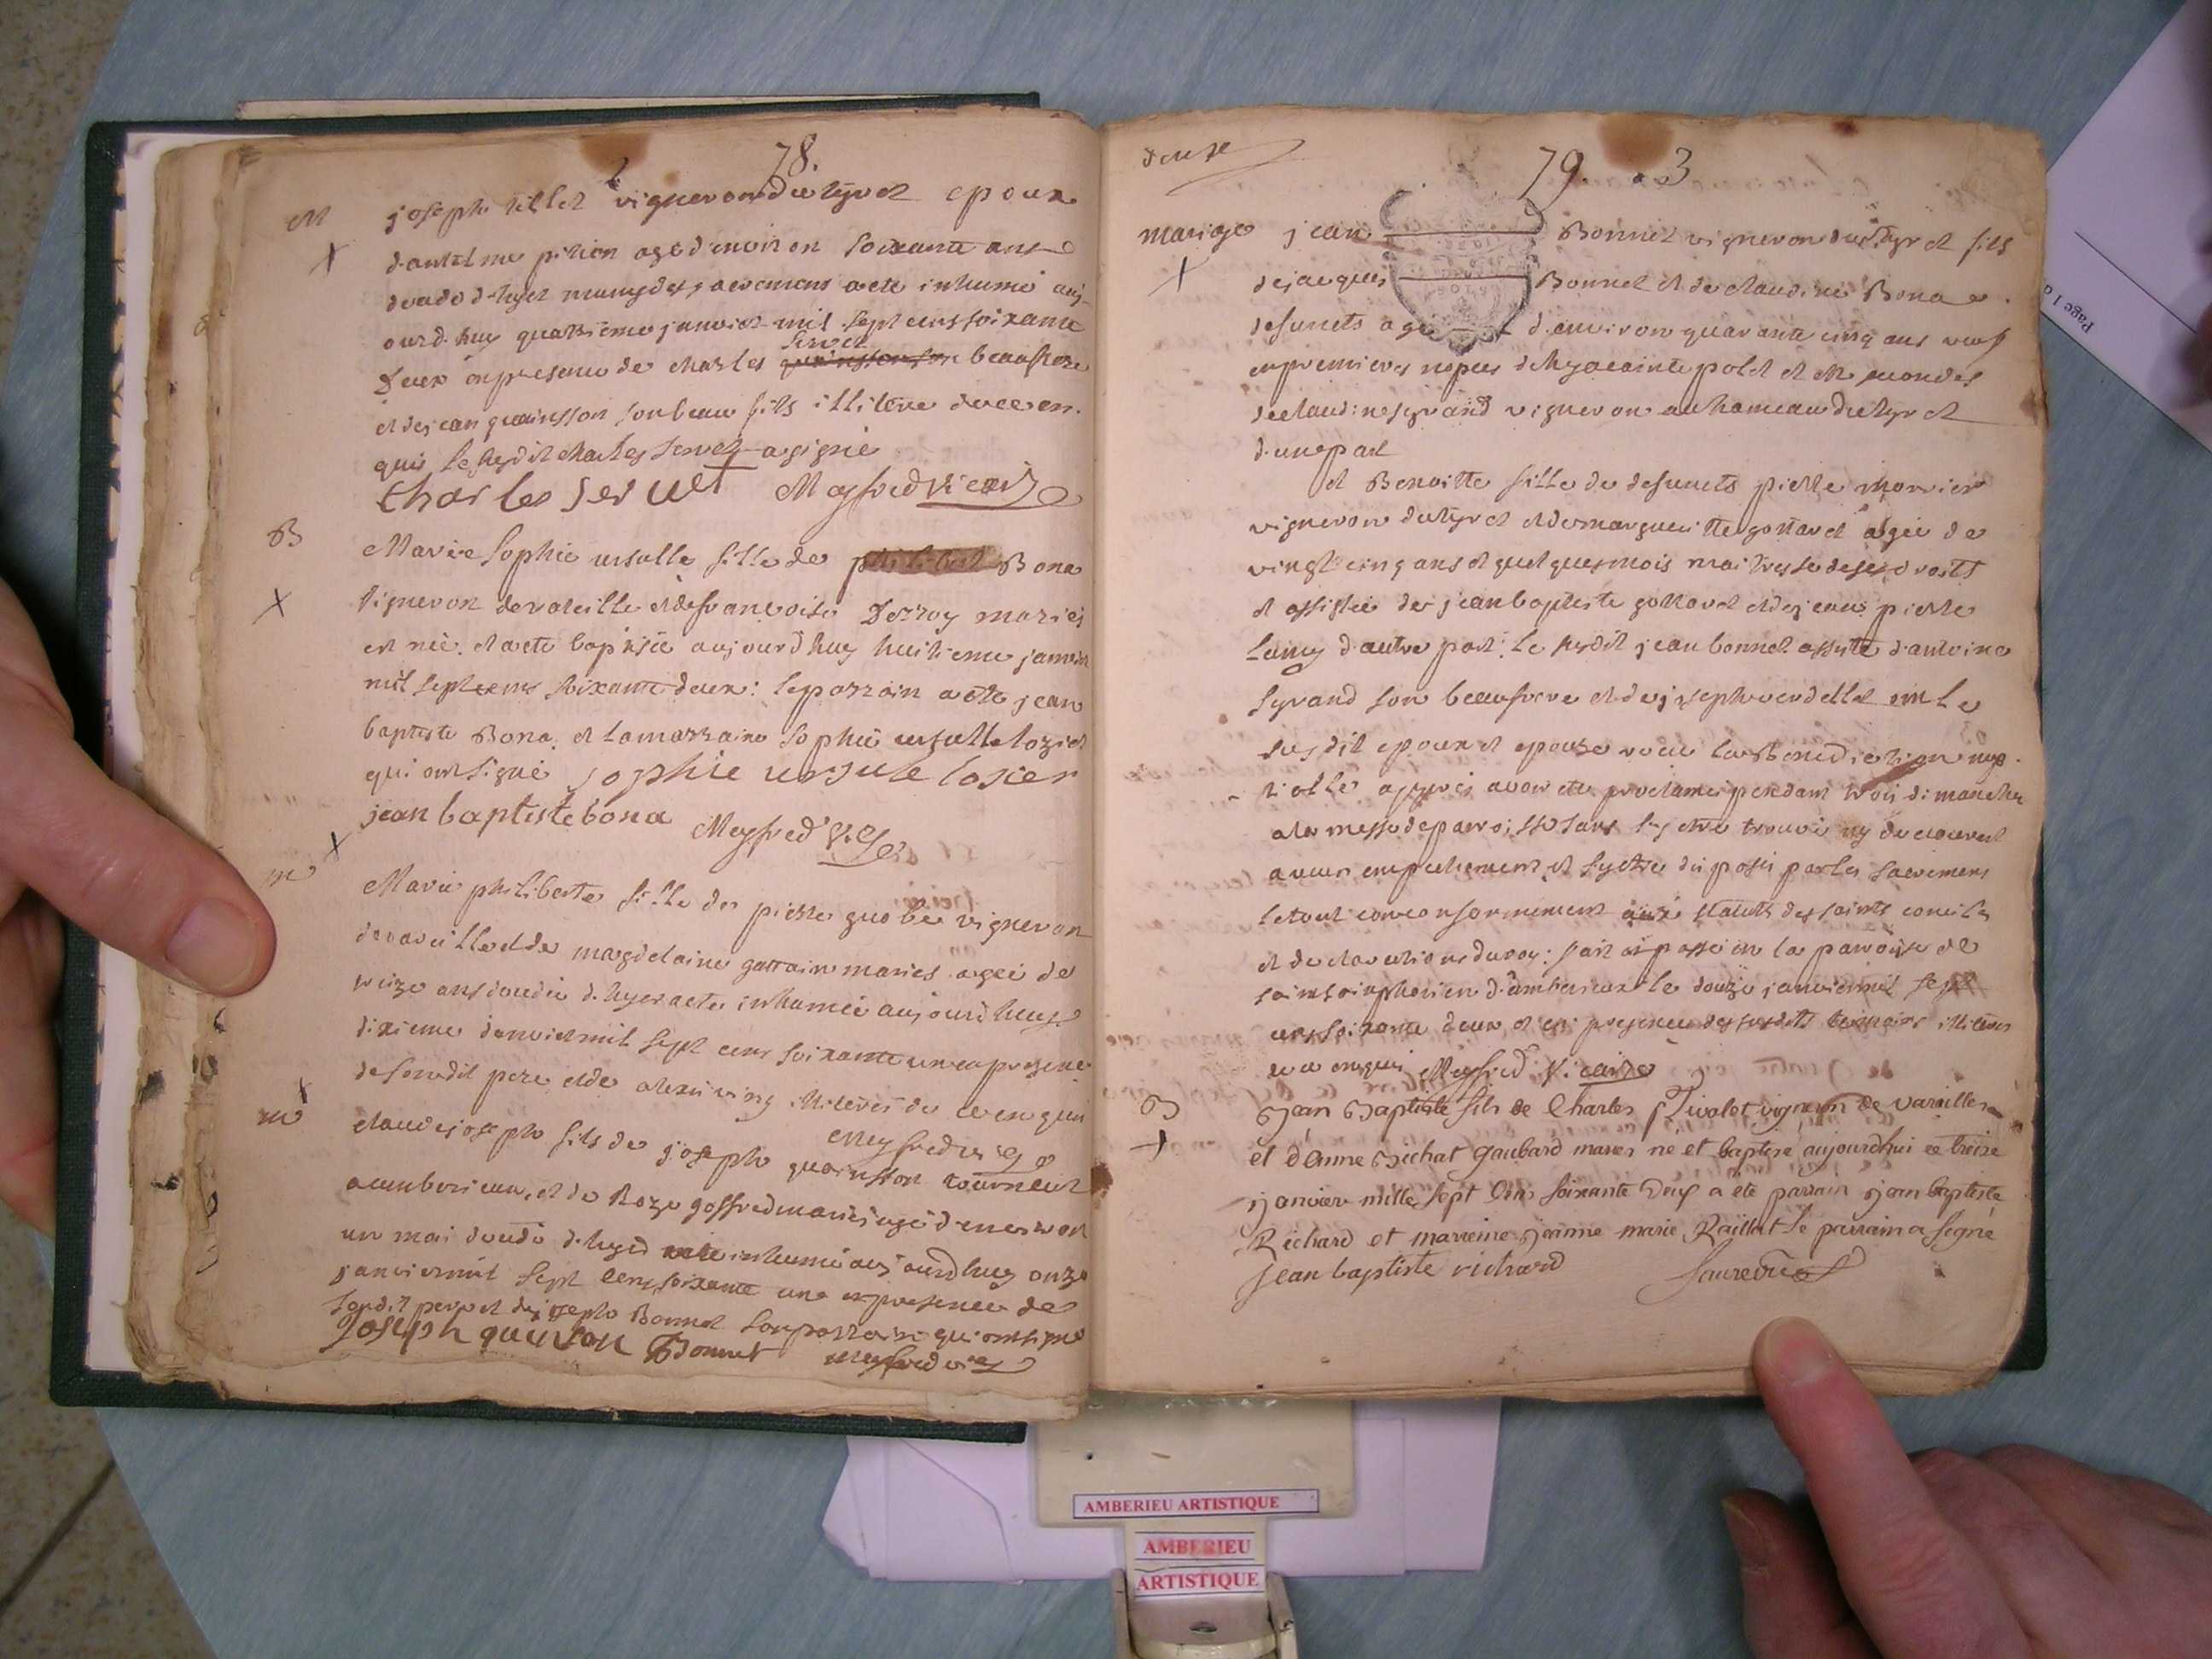 2 78.
M joseph tillet vigneron du tyret epoux
d'antelme pition agé d'environ soixante ans
decedé d'hyer muny des sacremens a ete inhumé auj-
ourd-huy quatrieme janvier mil sept cens soixante
deux en presence de charles servet beaufrere
et de jean quainsson son beau fils illiteré de ce en-
quis le susdit charles servet a signé
charles servet Meyfred vicair
B Marie Sophie ursulle fille de philibert Bona
vigneron de vareille et de francoise Derroy mariés
est née et a ete baptisée aujourd huy huitieme janvier
mil sept cens soixante deux: le parrain a ete jean
baptiste Bona et la marraine Sophie ursulle lozier
qui ont signé sophie ursule losier
jean baptiste bona Meyfred
m Marie philiberte fille de pierre vigneron
de vareille et de magdelaine mariés agée de
ans decedée d'hyer a ete inhumée aujourd huy
dixieme janvier mil sept cens soixante un en presence
de sondit pere et de illiterés de ce enquis
Meyfred vic
m claude joseph fils de joseph quainsson tourneur
a amberieux, et de Roze goffred mariés agé d'environ
un moi decedé d'hyer a ete inhumé aujourd huy onze
janvier mil sept cens soixante une en presence de
sondit pere et de joseph Bonnet son parrain qui ont signé
Joseph quinson Bonnet Meyfred vic
douze
79. 3
mariage jean Bonnet vigneron du tyret fils
de jacques Bonnet et de claudine Bona
defuncts agé d'environ quarante cinq ans veuf
en premieres nopces d'hyacainte polet et en secondes
de claudine syrand vigneron au hameau du tyret
d'une part
et Benoitte fille de defuncts pierre morrier
vigneron du tyret et de margueritte gottaret agée de
vingt cinq ans et quelques mois maitresse de ses droits
et assistée de jean baptiste gottaret et de jean pierre
d'autre part: le susdit jean bonnet assisté d'antoine
syrand son beaufrere et de joseph verdellet ont le
susdit epoux et epouse recu la Benediction nup-
tialle apprés avoir ete proclamés pendant trois dimanches
a la messe de parroisse sans s'y etre trouvé ny decouvert
aucun empechement et s'y etre disposés par les sacremens
le tout conformement aux statuts des saints conciles
et declarations du roy: fait et passé en la paroisse de
saint simphorien d'amberieux le douze janvier mil sept
cens soixante deux et en presence des susdits temoins illiterés
de ce enquis Meyfred Vicaire
B Jean Baptiste fils de Charles Tivolet vigneron de vareilles
et d'anne Michat gaubard mariés né et baptisé aujourdhui ce treize
janvier mille sept cens soixante deux a ete parrain jean baptiste
Richard et marreine jeanne marie Raillat le parrain a segné
jean baptiste richard
Page 1
AMBERIEU ARTISTIQUE
AMBERIEU
ARTISTIQUE